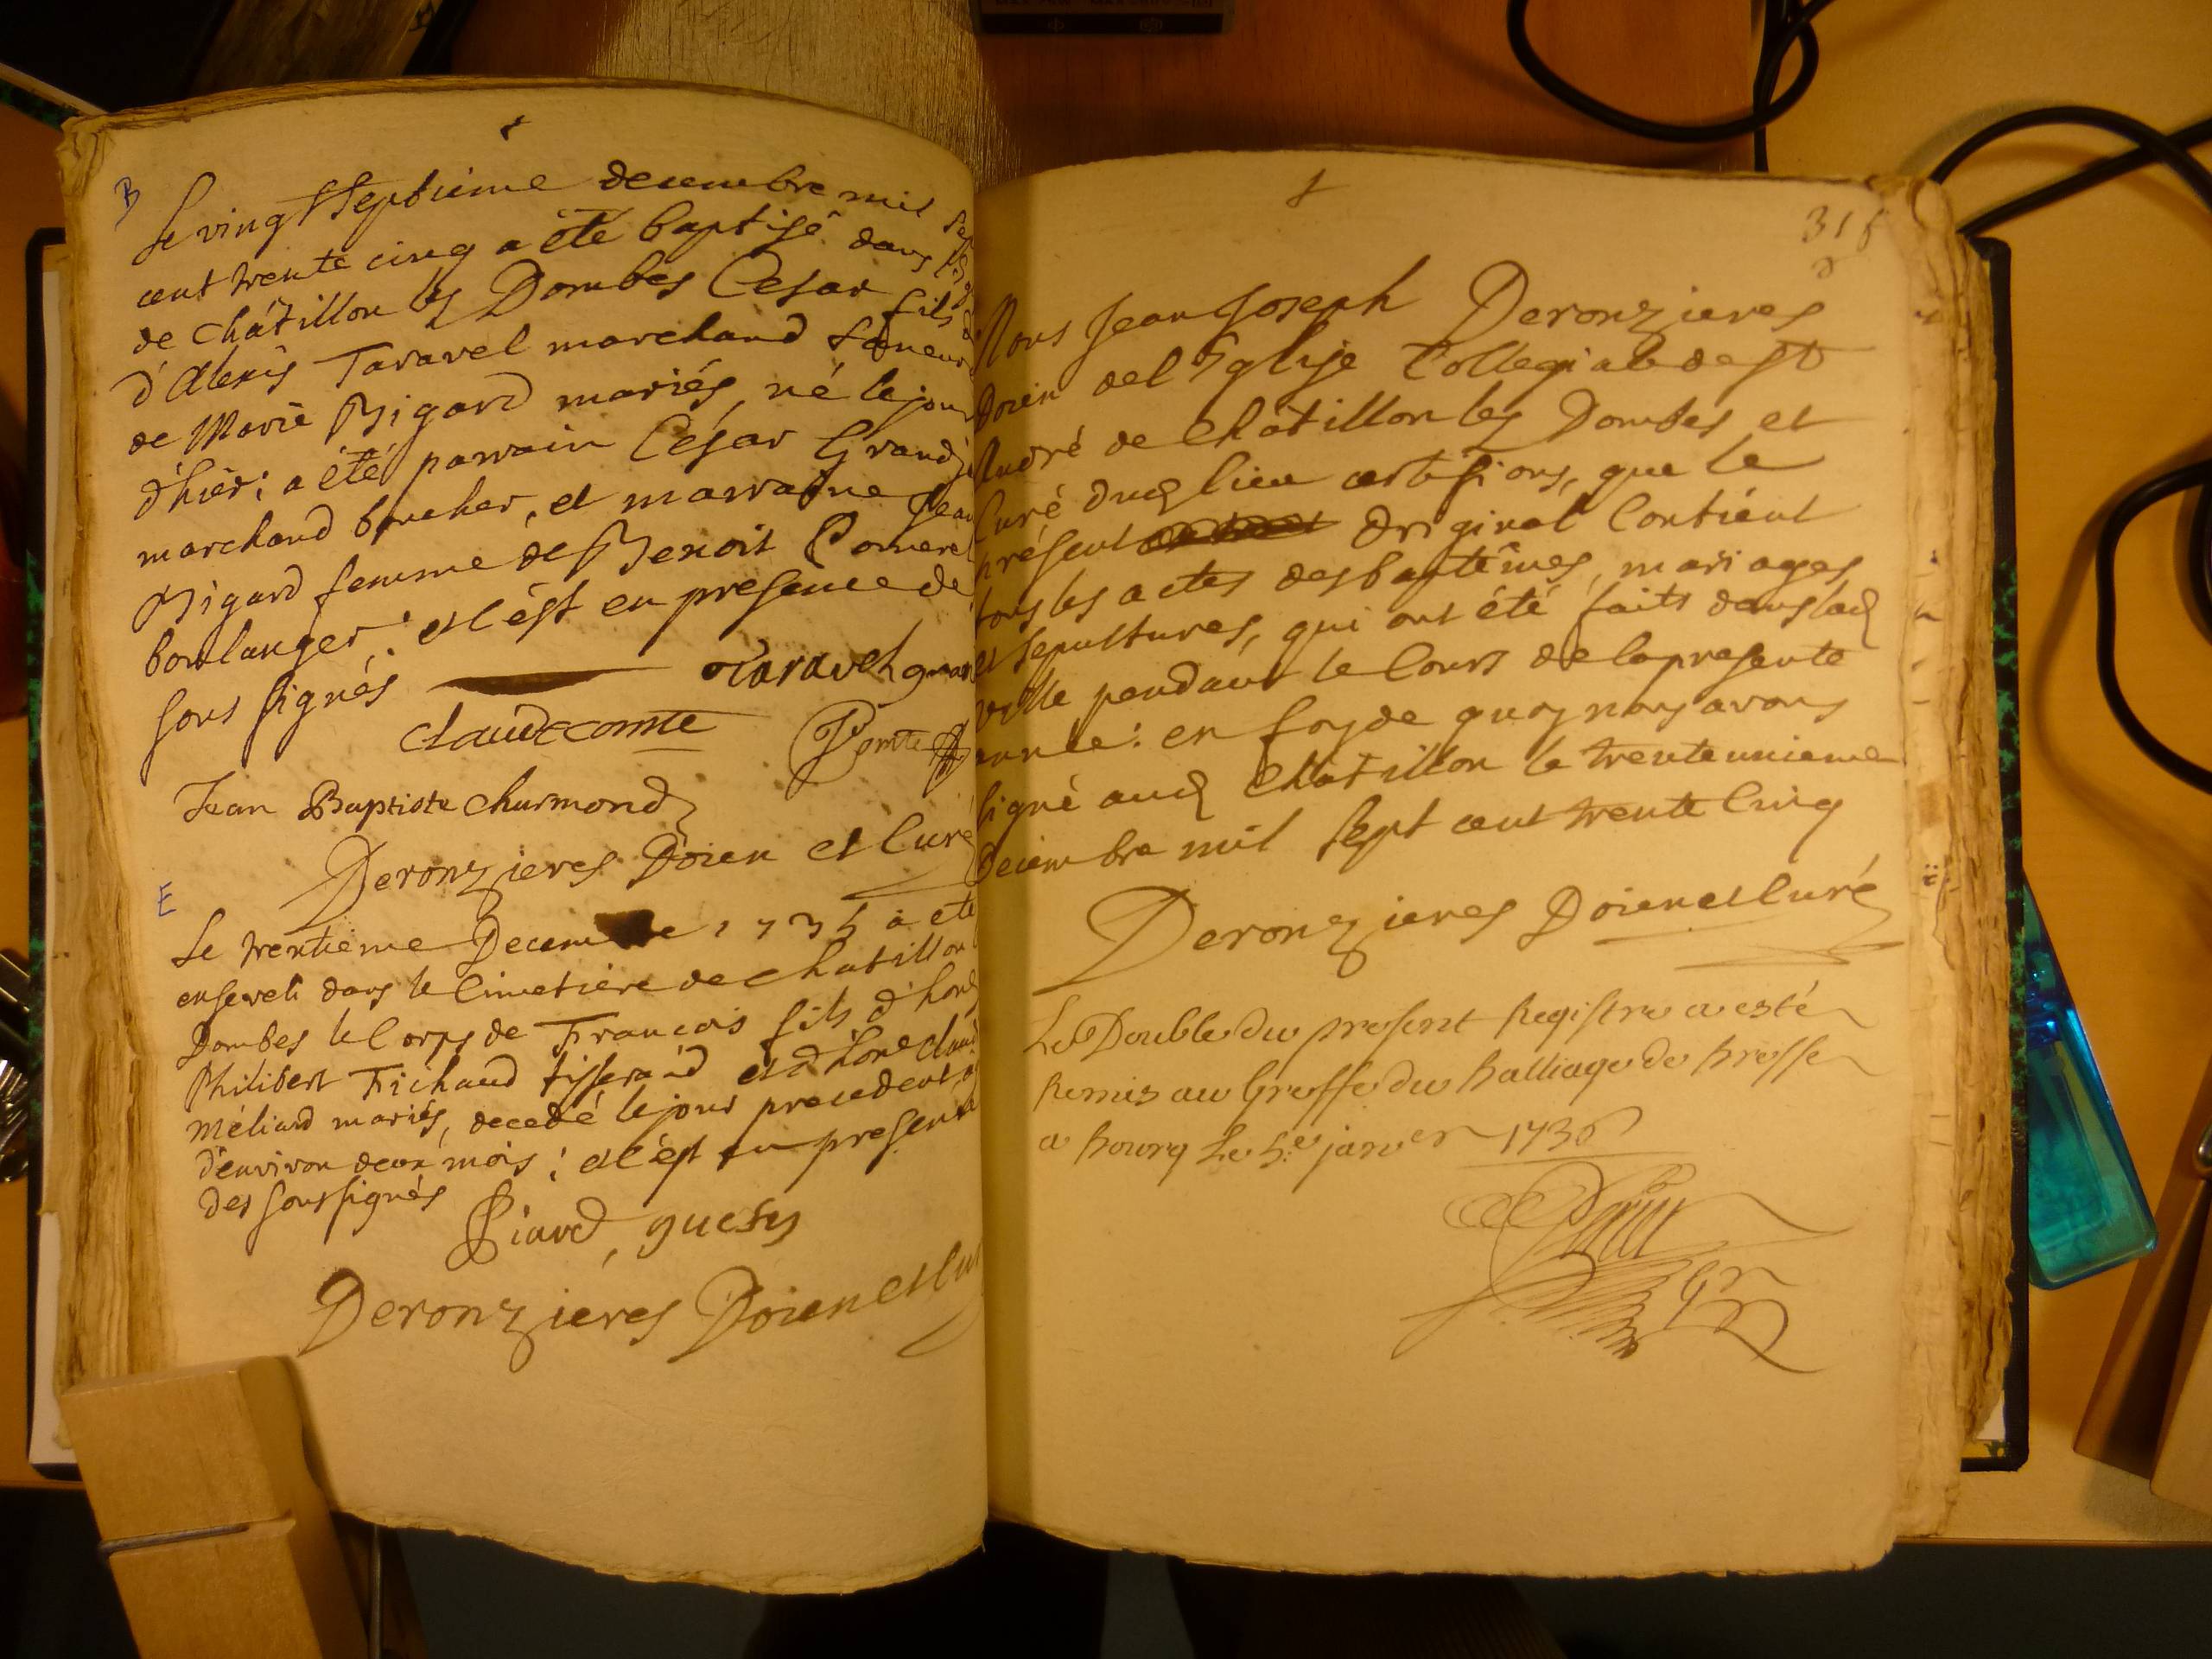 B
Le vingt septieme decembre mil sept
cent trente cinq a été baptisé dans
de Châtillon les Dombes César fils
d'Alexis Taravel marchand taneur
de Marie Bigard mariés, né le jour
d'hièr; a été parrain César Grand
marchand boucher, et marraine Jean
Bigard femme de Benoit Pomerel
boulanger: et c'est en presence de
sous signés Taravel
Claude comte Pomte
Jean Baptiste Charmond
Deronzieres Doien et Curé
E
Le trentième Decembre 1735 a eté
enseveli dans le Cimetière de Chatillon
Dombes le Corps de Francois fils d'hon
Philibert Fichaud tisserand et d'hone Claud
Méliard mariés, decedé le jour precedent
d'environ deux mois; et c'est en presence
des soussignés
Siard, guesy
Deronzières Doien et Cu
315
Nous Jean Joseph Deronzieres
Doien de l'Eglise Collegiale de St
André de Châtillon les Dombes et
Curé dud lieu certifions, que le
présent Original Contient
tous les actes des baptêmes, mariages
et sepultures, qui ont été faits dans lad
ville pendant le Cours de la presente
année: en foy de quoy nous avons
signé aud Châtillon le trente unieme
Decembre mil sept cent trente Cinq
Deronzieres Doien et Curé
Le Double du present Registre a esté
Remis au Greffe du Balliage de Bresse
a Bourg Le 5e janvier 1736